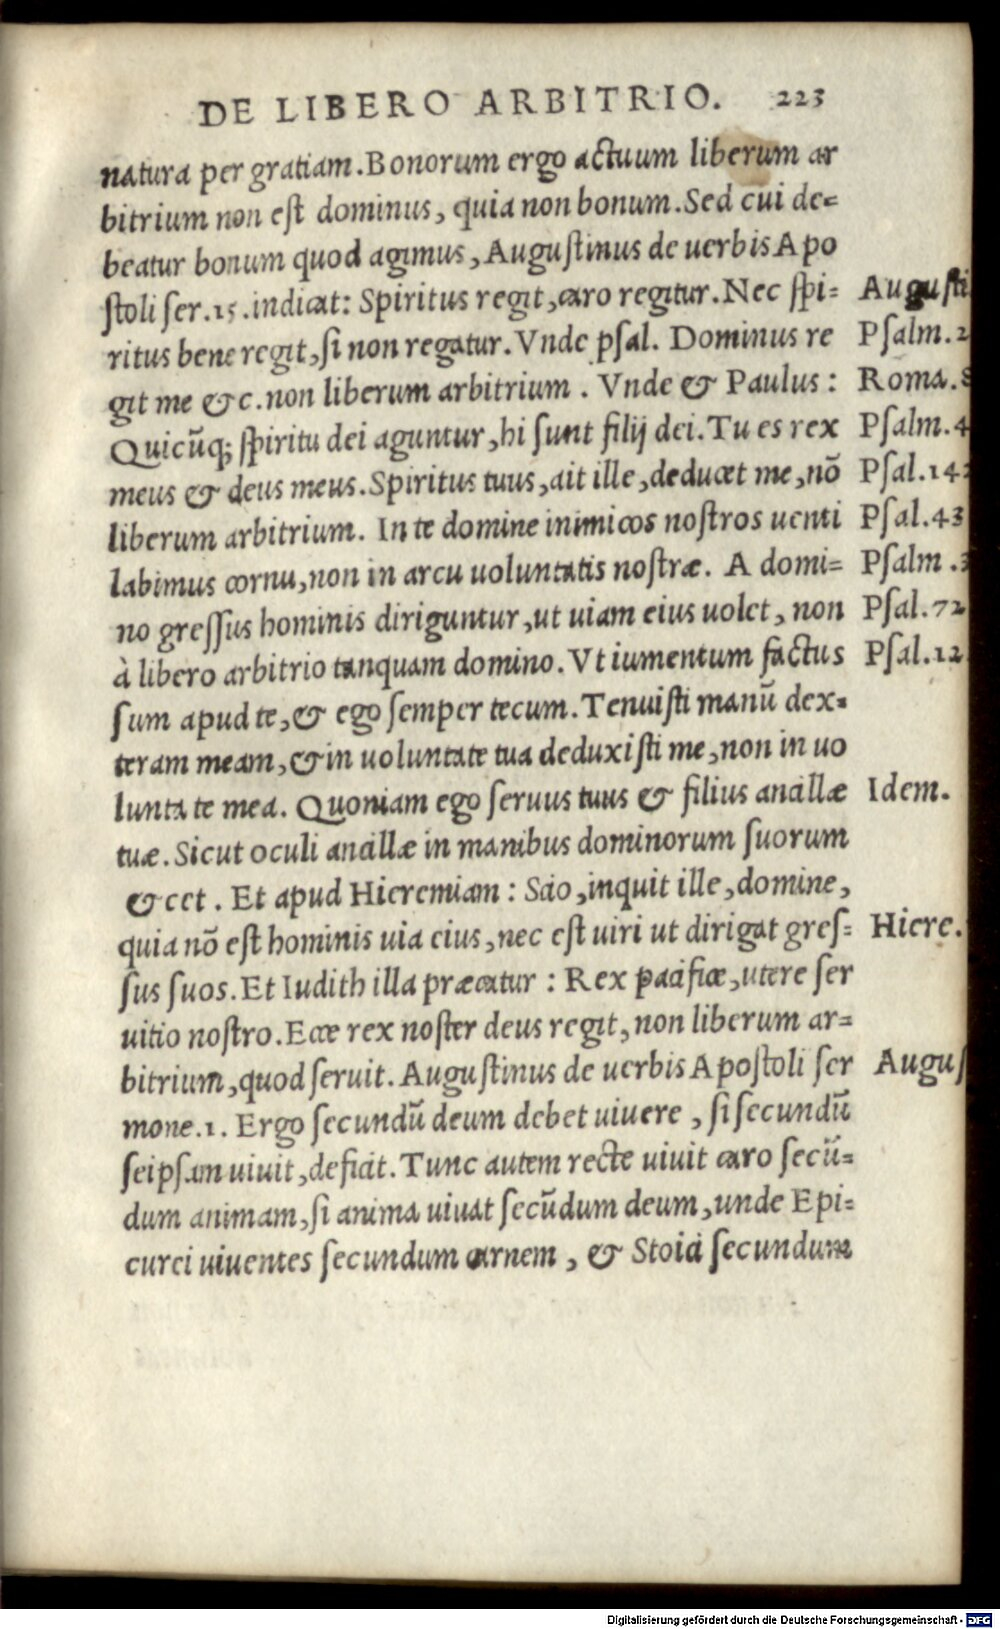 DE LIBERO ARBITRIO. 223
natura per gratiam. Bonorum ergo actuum liberum ar
bitrium non est dominus, quia non bonum. Sed cui de=
beatur bonum quod agimus, Augustinus de uerbis Apo
stoli ser. 15. indicat: Spiritus regit, caro regitur. Nec spi= Augusti
ritus bene regit, si non regatur. Vnde psal. Dominus re Psalm. 2
git me &c. non liberum arbitrium. Vnde & Paulus: Roma. 8
Quicūq; spiritu dei aguntur, hi sunt filij dei. Tu es rex Psalm. 4
meus & deus meus. Spiritus tuus, ait ille, deducet me, nō Psal. 142
liberum arbitrium. In te domine inimicos nostros uenti Psal. 43
labimus cornu, non in arcu uoluntatis nostræ. A domi= Psalm. 3
no gressus hominis diriguntur, ut uiam eius uolet, non Psal. 72
à libero arbitrio tanquam domino. Vt iumentum factus Psal. 12
sum apud te, & ego semper tecum. Tenuisti manū dex=
teram meam, & in uoluntate tua deduxisti me, non in uo
luntate mea. Quoniam ego seruus tuus & filius ancillæ Idem.
tuæ. Sicut oculi ancillæ in manibus dominorum suorum
& cet. Et apud Hieremiam: Scio, inquit ille, domine,
quia nō est hominis uia eius, nec est uiri ut dirigat gres= Hiere.
sus suos. Et Iudith illa præcatur: Rex pacifice, utere ser
uitio nostro. Ecce rex noster deus regit, non liberum ar=
bitrium, quod seruit. Augustinus de uerbis Apostoli ser Augus
mone. 1. Ergo secundū deum debet uiuere, si secundū
seipsam uiuit, deficit. Tunc autem recte uiuit caro secū=
dum animam, si anima uiuat secūdum deum, unde Epi=
curei uiuentes secundum carnem, & Stoici secundum
Digitalisierung gefördert durch die Deutsche Forschungsgemeinschaft - DFG